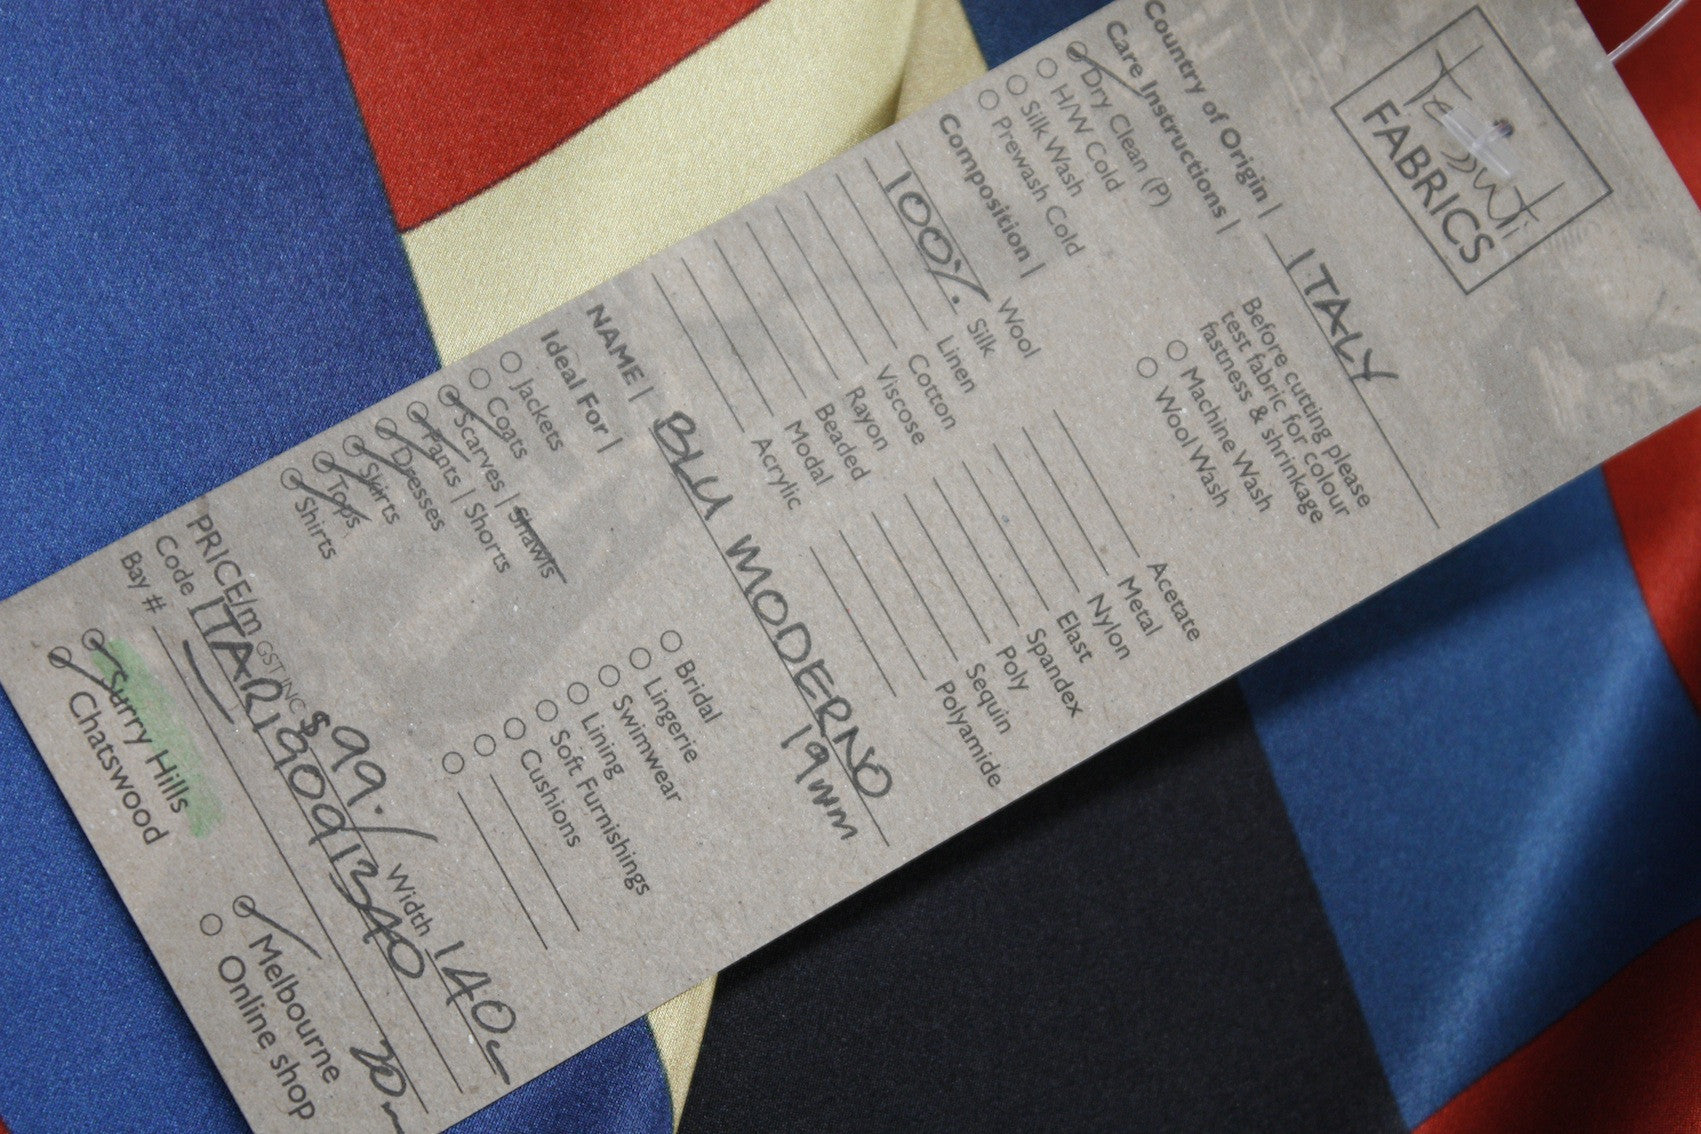 Tessuti
FABRICS
Country of Origin | ITALY
Care Instructions |
Dry Clean (P)
H/W Cold
Silk Wash
Prewash Cold
Before cutting please
test fabric for colour
fastness & shrinkage
Machine Wash
Wool Wash
Composition |
Wool
100% Silk
Linen
Cotton
Viscose
Rayon
Beaded
Modal
Acrylic
Acetate
Metal
Nylon
Elast
Spandex
Poly
Sequin
Polyamide
NAME | BLU MODERNO
19mm
Ideal For |
Jackets
Coats
Scarves | Shawls
Pants | Shorts
Dresses
Skirts
Tops
Shirts
Bridal
Lingerie
Swimwear
Lining
Soft Furnishings
Cushions
PRICE/m GST INC $99./ Width 140c
Code ITAR1909 1340
Bay # 20m
Surry Hills
Chatswood
Melbourne
Online shop